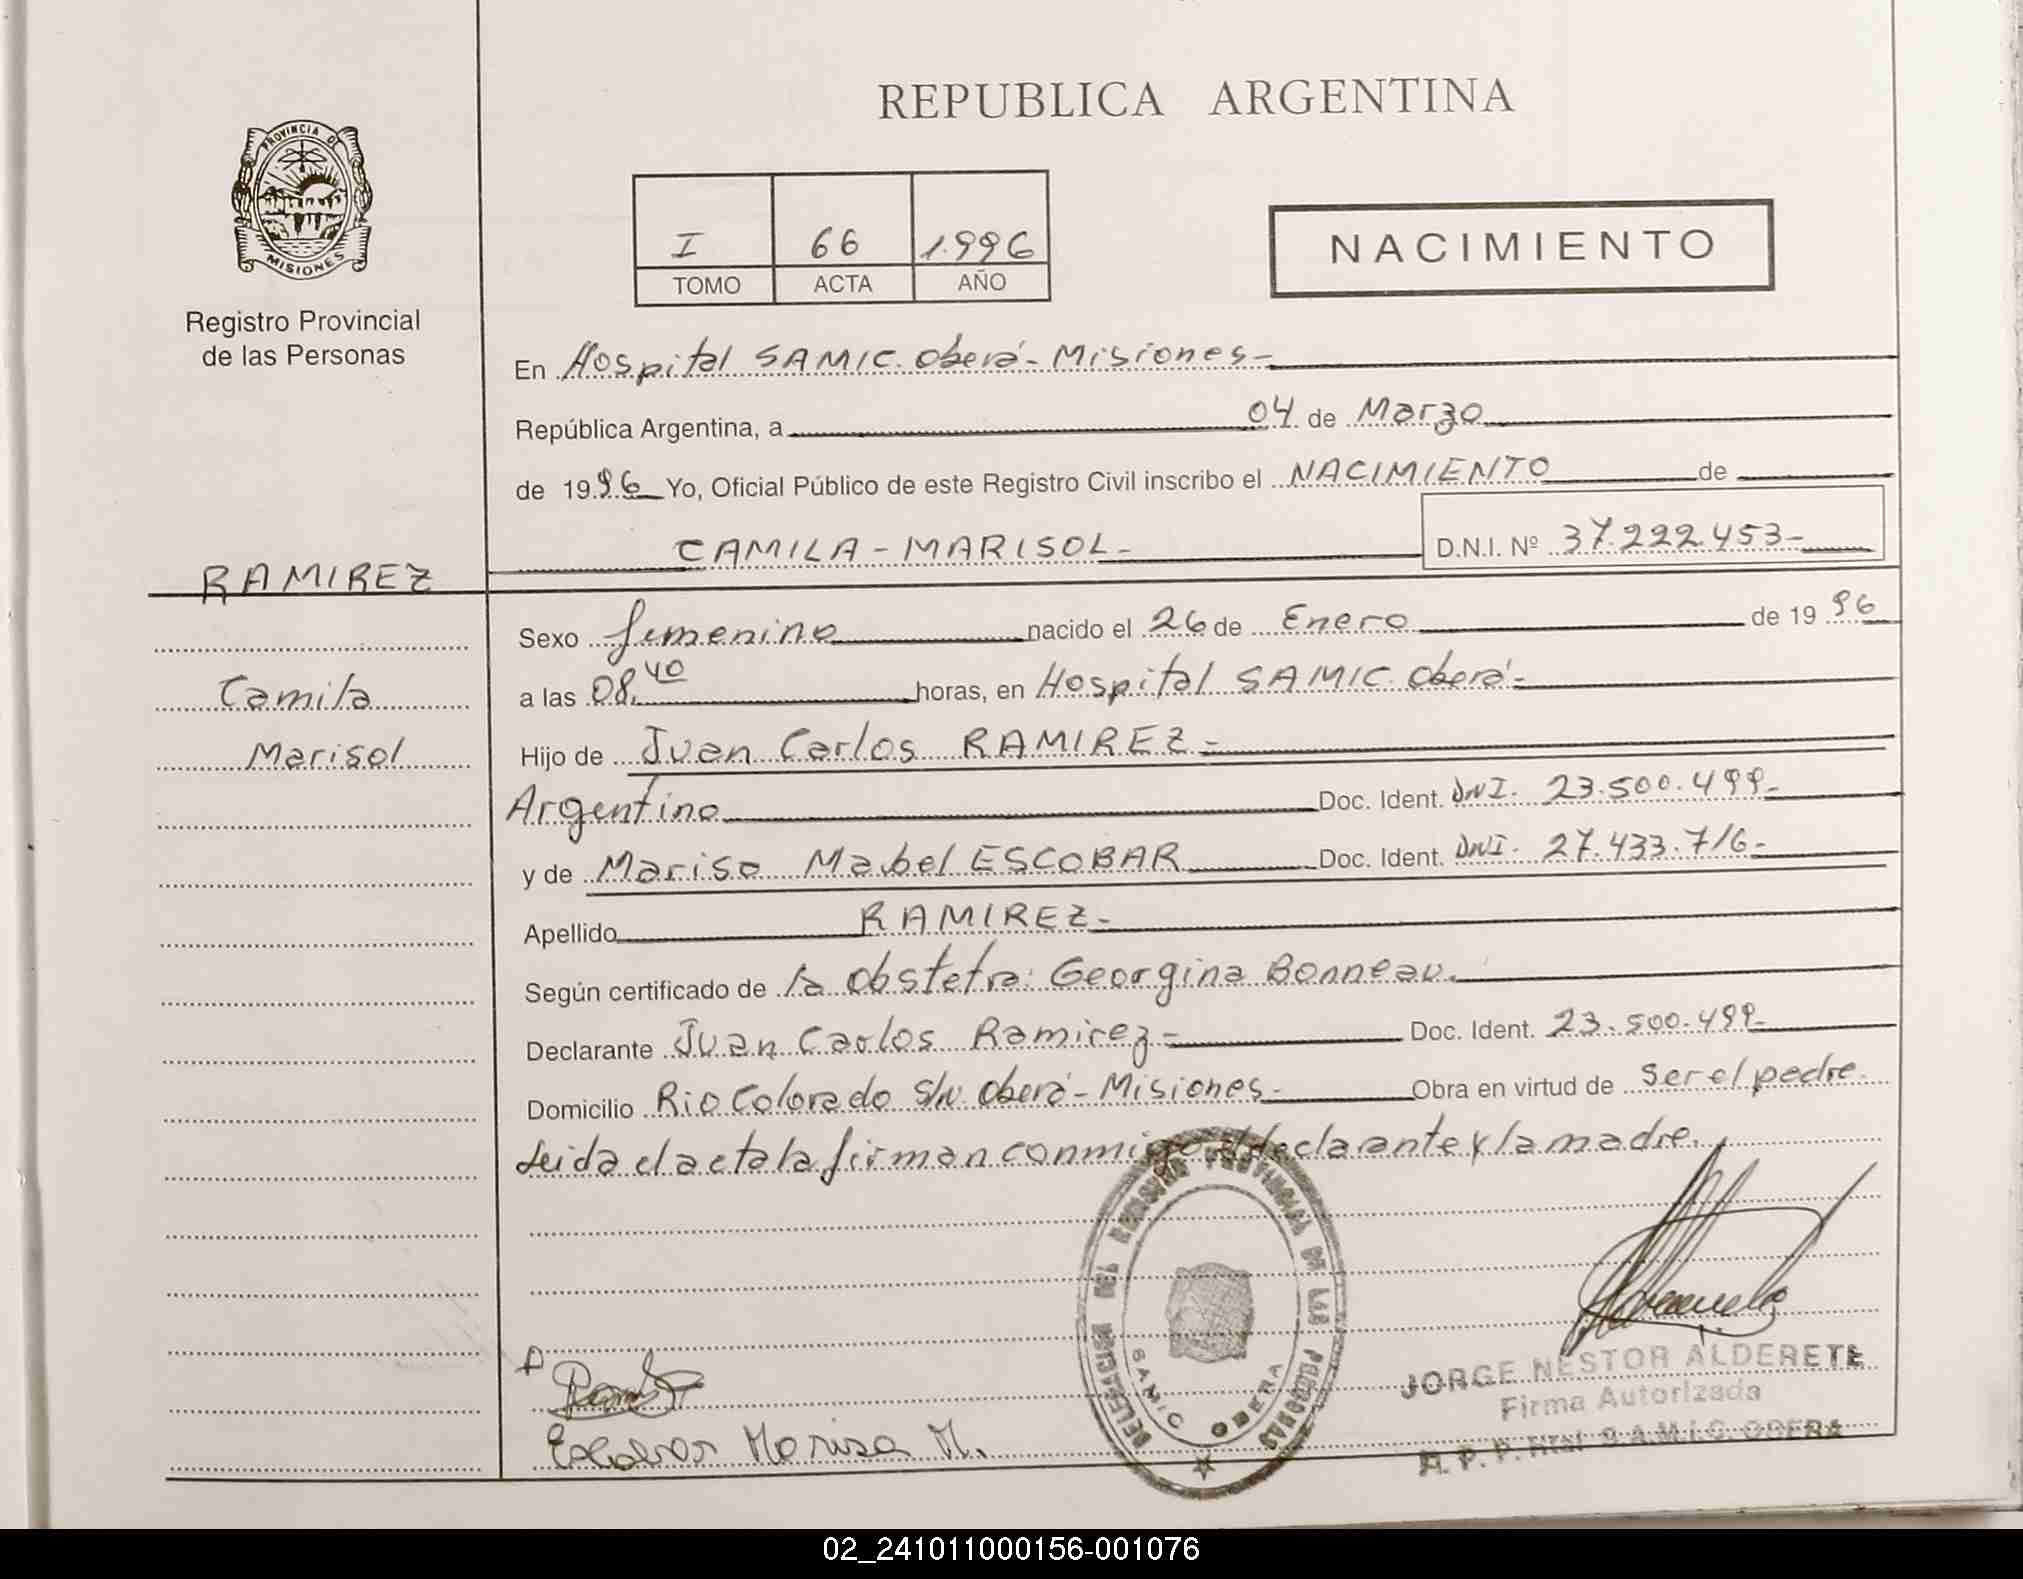 REPUBLICA ARGENTINA
PROVINCIA DE
MISIONES
Registro Provincial
de las Personas
I 66 1.996
TOMO ACTA AÑO
NACIMIENTO
En Hospital SAMIC. Oberá - Misiones -
República Argentina, a 04 de Marzo
de 1996 Yo, Oficial Público de este Registro Civil inscribo el NACIMIENTO de
CAMILA - MARISOL - D.N.I. Nº 37.222.453-
RAMIREZ
Camila
Marisol
Sexo femenino nacido el 26 de Enero de 1996
a las 08.40 horas, en Hospital SAMIC. Oberá -
Hijo de Juan Carlos RAMIREZ -
Argentino Doc. Ident. DNI. 23.500.499-
y de Marisa Mabel ESCOBAR Doc. Ident. DNI. 27.433.716-
Apellido RAMIREZ -
Según certificado de la obstetra: Georgina Bonneau.
Declarante Juan Carlos Ramirez - Doc. Ident. 23.500.499-
Domicilio Rio Colorado S/N Oberá - Misiones - Obra en virtud de ser el padre.
Leida el acta la firman conmigo el declarante y la madre.
DELEGACION REGISTRO PROVINCIAL DE LAS PERSONAS
SAMIC OBERA
JORGE NESTOR ALDERETE
Firma Autorizada
R. P. P. Htal S.A.M.I.C. OBERA
Escobar Marisa M.
02_241011000156-001076